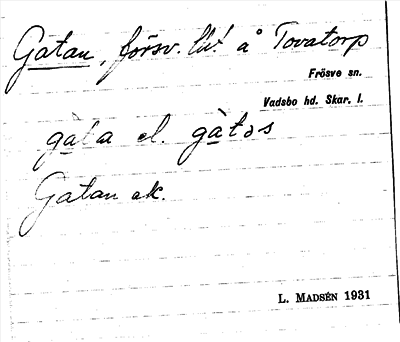 Gatan, försv. lht å Tovatorp
Frösve sn.
Vadsbo hd. Skar. l.
gàta el. gàtəs
Gatan ek.
L. MADSÉN 1931